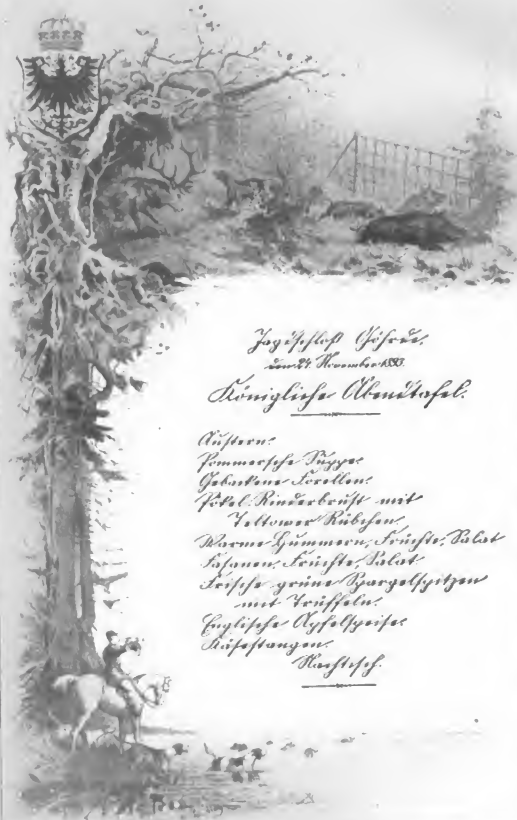 Jagdschloß Göhrde.
den 24. November 1893.
Königliche Abendtafel.
Austern.
Pommersche Suppe.
Gebackene Forellen.
Pökel-Rinderbrust mit
Teltower Rübchen.
Warme Hummern, Früchte, Salat
Fasanen, Früchte, Salat
Frische grüne Spargelspitzen
mit Trüffeln.
Englische Apfelspeise.
Käsestangen.
Nachtisch.